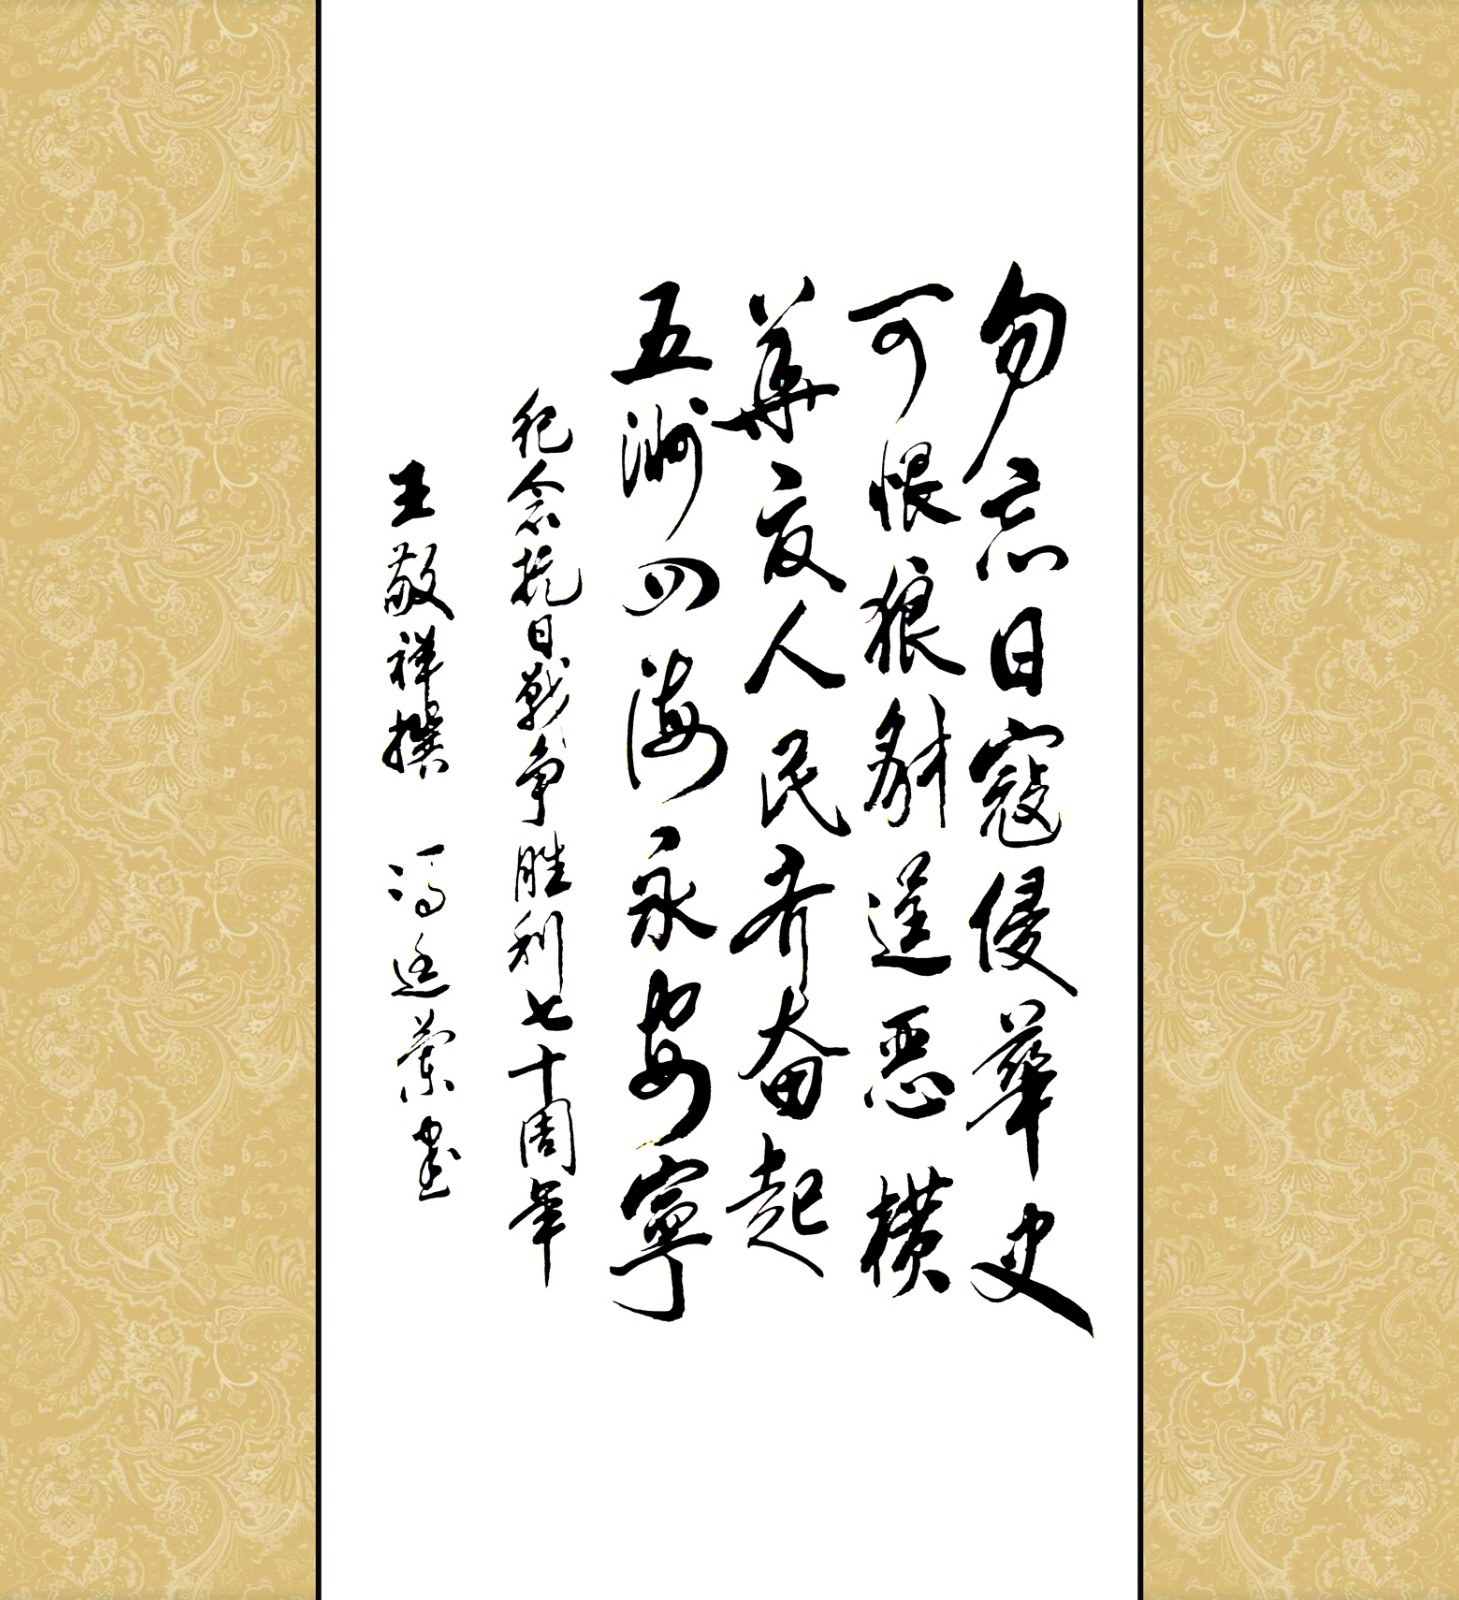 勿忘日寇侵華史
可恨狼豺逞恶横
華夏人民齐奋起
五洲四海永安寧
纪念抗日戰争胜利七十周年
王敬祥撰 冯延兰书